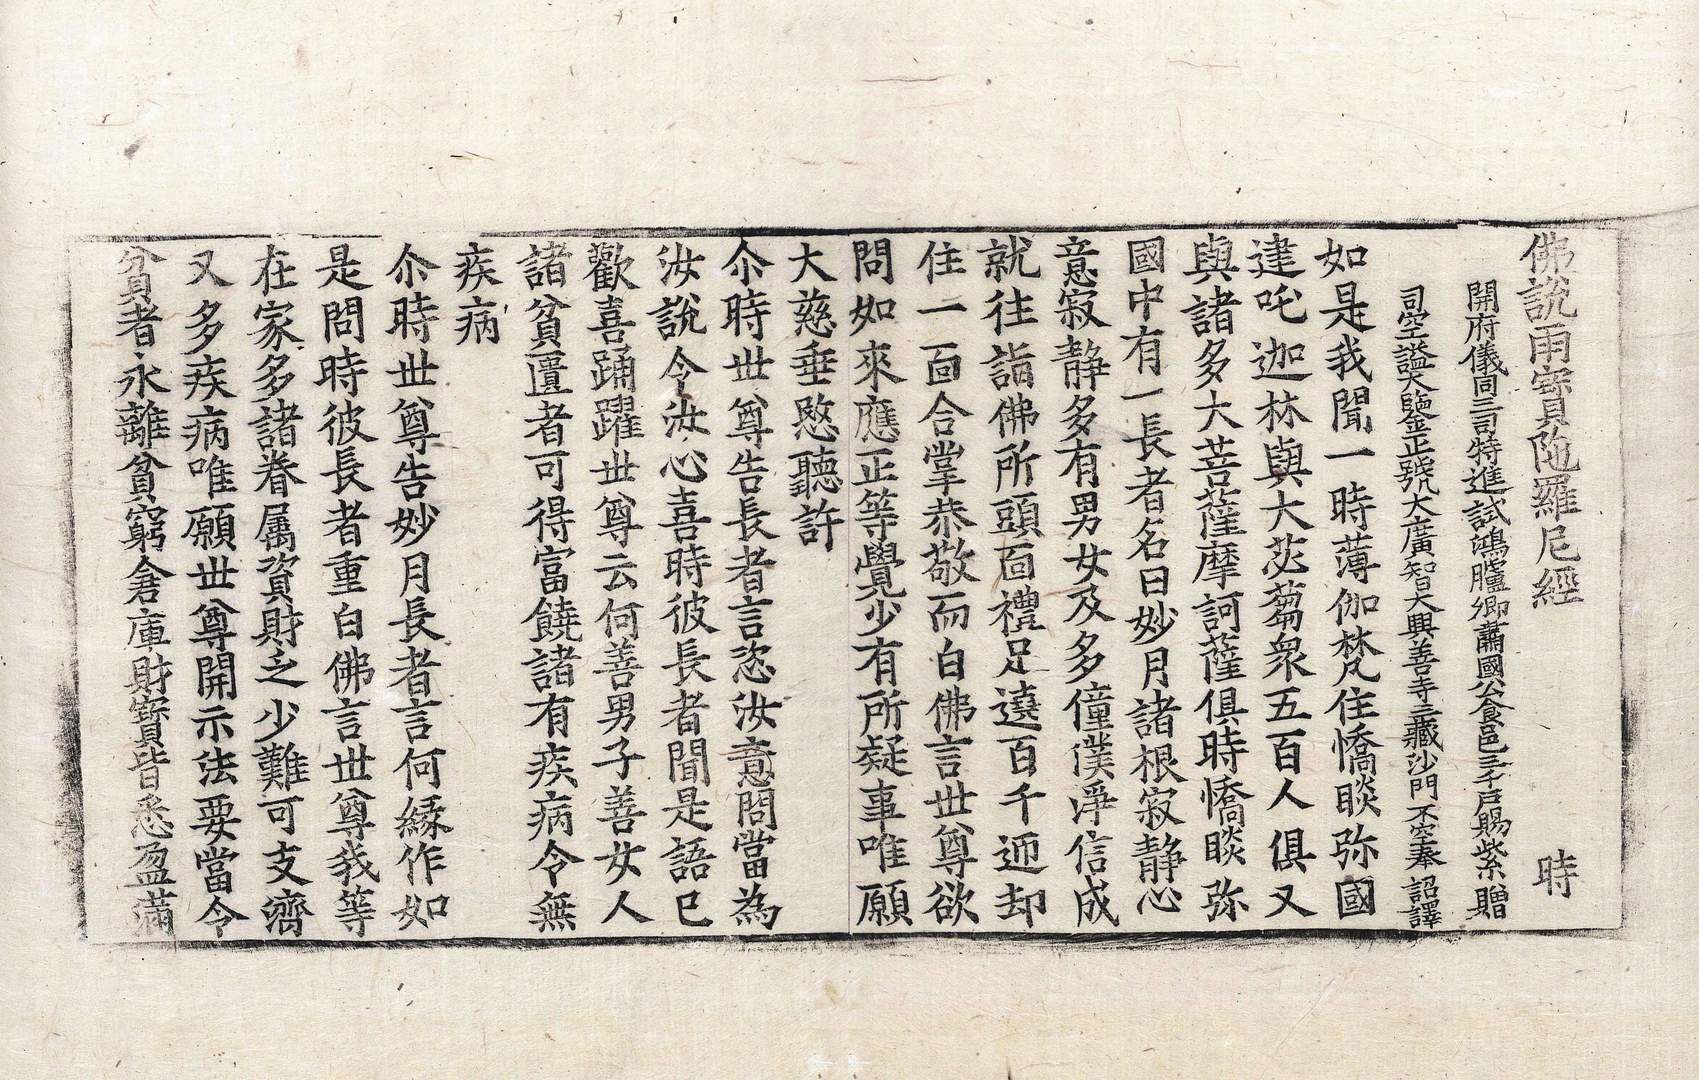 佛說雨寳陁羅尼經　時
開府儀同三司特進試鴻臚卿肅國公食邑三千戸賜紫贈
司空謚大鑒正號大廣智大興善寺三藏沙門不空奉　詔譯
如是我聞一時薄伽梵住憍睒弥國
建吒迦林與大苾蒭衆五百人俱又
與諸多大菩薩摩訶薩俱時憍睒弥
國中有一長者名曰妙月諸根寂静心
意寂静多有男女及多僮僕淨信成
就往詣佛所頭面禮足遶百千迊却
住一面合掌恭敬而白佛言世尊欲
問如來應正等覺少有所疑事唯願
大慈垂愍聽許
尒時世尊告長者言恣汝意問當為
汝說令汝心喜時彼長者聞是語已
歡喜踊躍世尊云何善男子善女人
諸貧匱者可得富饒諸有疾病令無
疾病
尒時世尊告妙月長者言何縁作如
是問時彼長者重白佛言世尊我等
在家多諸眷属資財乏少難可支濟
又多疾病唯願世尊開示法要當令
貧者永離貧窮倉庫財寶皆悉盈滿